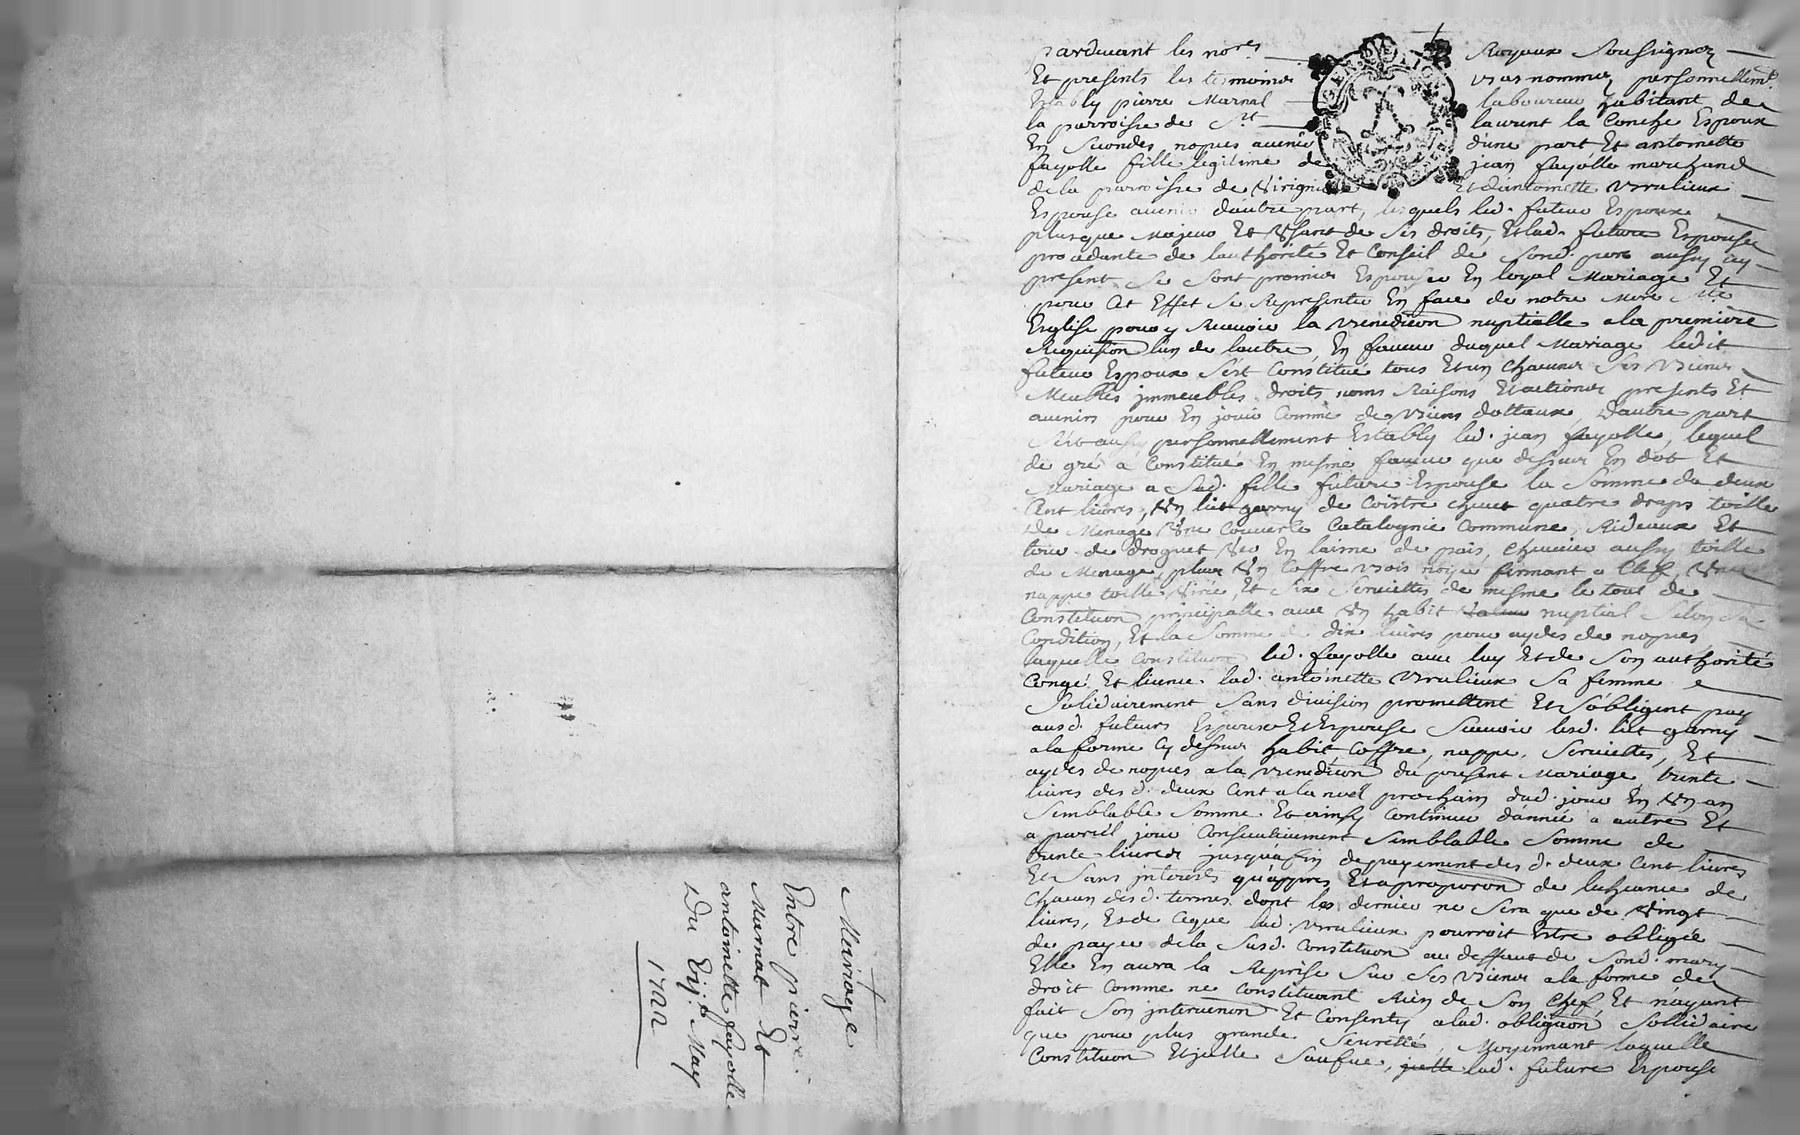 Mariage
Entre pierre
Marnat Et
antoinette fayolle
Du vij.e May
1722
pardevant les no.res Royaux Soussignez
Et presents les tesmoins bas nommez personnellem.t
Estably pierre Marnat laboureur habitant de
la parroisse de S.t laurent la Conche Espoux
En Secondes nopces avenir d'une part Et antoinette
fayolle fille legitime de jean fayolle marchand
de la parroisse de Virigni Et d'antoinette brulieux
Espouse avenir d'autre part, lesquels led. futeur Espoux
plusque Majeur Et Usant de Ses droits, Et lad. future Espouse
procedante de l'authorité Et Conseil de Sond. pere aussy cy
present Se Sont promis Espouser En loyal Mariage Et
pour Cet Effet Se Representer En face de notre Mere S.te
Esglise pour y Recevoir la benediction nuptialle a la premiere
Requision l'un de l'autre, En faveur duquel Mariage ledit
futeur Espoux S'est Constitué tous Et un chacuns Ses biens
Meubles jmmeubles, droits, noms Raisons Et actions presents Et
avenirs pour En jouir Comme de biens dottaux, D'autre part
S'est aussy personnellement Estably led. jean fayolle, lequel
de gré a Constitué En mesme faveur que dessus En dot Et
Mariage a Sad. fille future Espouse la Somme de deux
Cent livres, Un lit garny de Coistre chevet quatre draps toille
de Menage Une Couverte Catalognie Commune, Rideaux Et
tour de droguet En laine de pais, aussy toille
de Menage, plus Un Coffre bois noyer fermant a Clef, Une
nappe toille Et Six Serviettes de mesme le tout de
Constitution principalle avec Un habit nuptial Selon Sa
Condition, Et la Somme de dix livres pour aydes de nopces
laquelle Constitution led. fayolle avec luy Et de Son authorité
Congé Et licence lad. antoinette brulieux Sa femme
Solidairement Sans division promettent Et S'obligent payer
ausd. futeurs Espoux Et Espouse Scavoir lesd. lit garny
a la forme Cy dessus habit Coffre, nappe, Serviettes, Et
aydes de nopces a la benediction du present Mariage, trente
livres desd. deux Cent a la noel prochain dud. jour En Un an
Semblable Somme Et ainsy Continuer d'année a autre Et
a pareil jour Consecutivement Semblable Somme de
trente livres jusqu'a fin de payement desd. deux Cent livres
Et Sans jnterests qu'appres Et a proportion de l'escheance de
Chacun desd. termes dont le dernier ne Sera que de Vingt
livres, Et de Ceque lad. brulieux pourroit Estre obligée
de payer de la Susd. Constitution au deffaut de Sond. mary
Elle En aura la Reprise Sur Ses biens a la forme de
droit Comme ne Constituant Rien de Son Chef, Et n'ayant
fait Son jntervention Et Consenty a lad. obligation Sollidaire
que pour plus grande Seureté, Moyennant laquelle
Constitution Et jcelle Sauve, lad. future Espouse